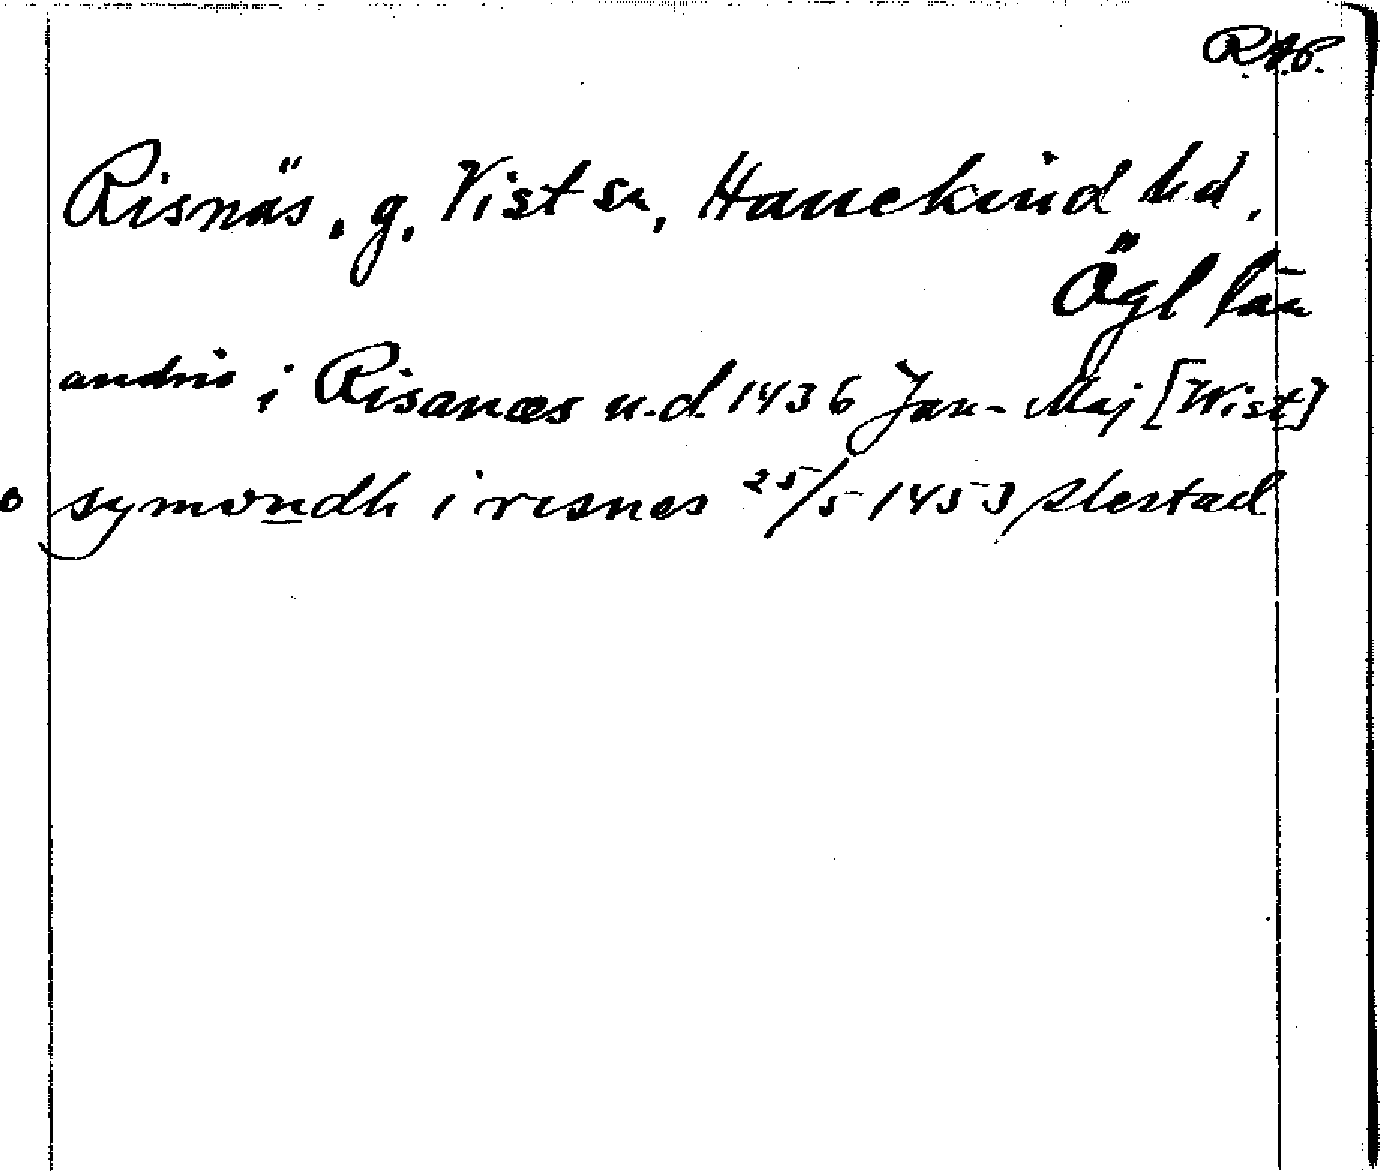 R.A.P.
Risnäs, g, Vist sn, Hanekind hd,
Ögl län
andris i Risanæs u.d. 1436 Jan-Maj [Wist]
o symondh i risnes 25/5 1453 Slestad